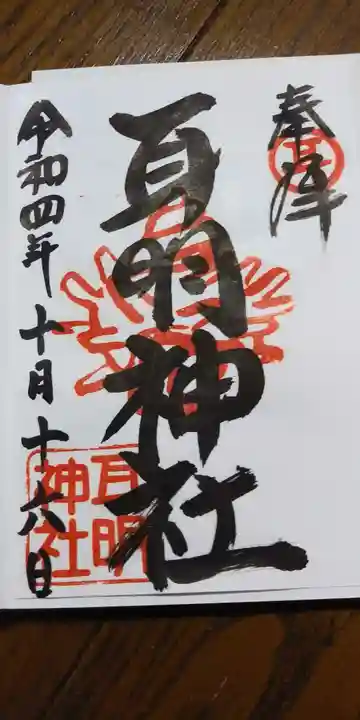 奉拝
耳明神社
令和四年十月十八日
耳明
神社